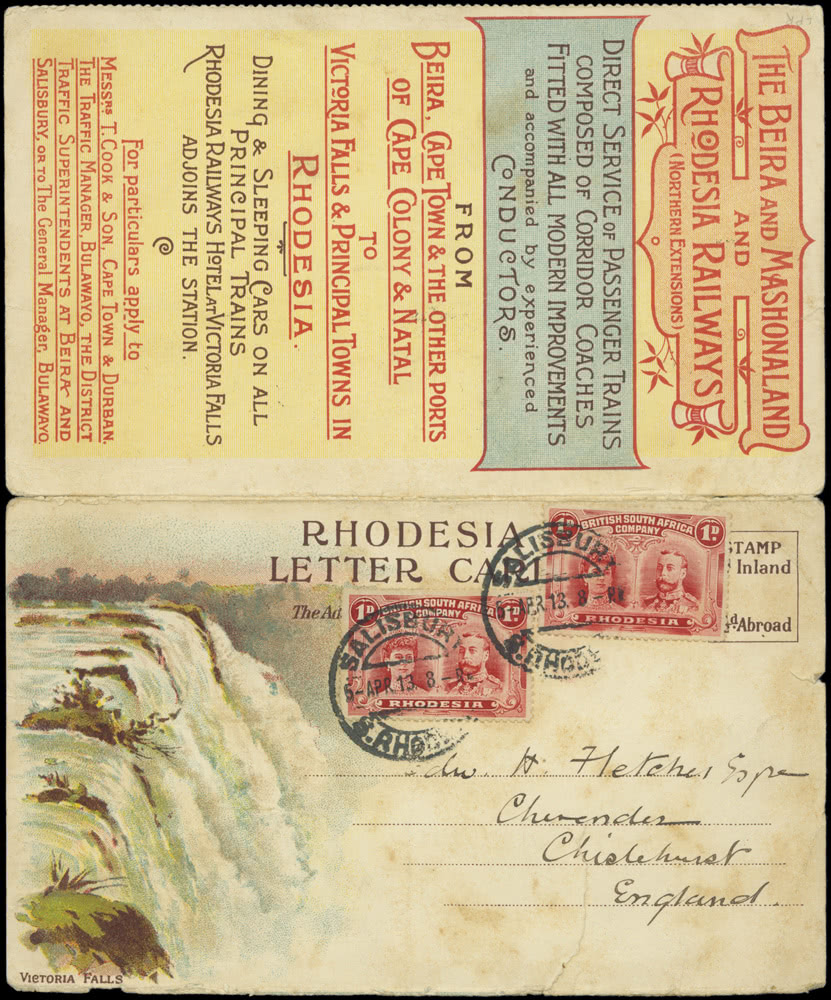 THE BEIRA AND MASHONALAND
AND
RHODESIA RAILWAYS
(NORTHERN EXTENSIONS)
DIRECT SERVICE OF PASSENGER TRAINS
COMPOSED OF CORRIDOR COACHES
FITTED WITH ALL MODERN IMPROVEMENTS
and accompanied by experienced
CONDUCTORS.
FROM
BEIRA, CAPE TOWN & THE OTHER PORTS
OF CAPE COLONY & NATAL
TO
VICTORIA FALLS & PRINCIPAL TOWNS IN
RHODESIA.
DINING & SLEEPING CARS ON ALL
PRINCIPAL TRAINS
RHODESIA RAILWAYS HOTEL AT VICTORIA FALLS
ADJOINS THE STATION.
For particulars apply to
MESSRS T. COOK & SON, CAPE TOWN & DURBAN.
THE TRAFFIC MANAGER, BULAWAYO, THE DISTRICT
TRAFFIC SUPERINTENDENTS AT BEIRA AND
SALISBURY, OR TO The General Manager, BULAWAYO.
RHODESIA
LETTER CARD
The Ad
STAMP
Inland
d. Abroad
1D BRITISH SOUTH AFRICA 1D
COMPANY
RHODESIA
SALISBURY
5-APR 13. 8-
S. RHOD
1D BRITISH SOUTH AFRICA 1D
COMPANY
RHODESIA
SALISBURY
5-APR 13. 8-
S. RHODE
H. Fletcher Esqre
Chislehurst
England.
VICTORIA FALLS